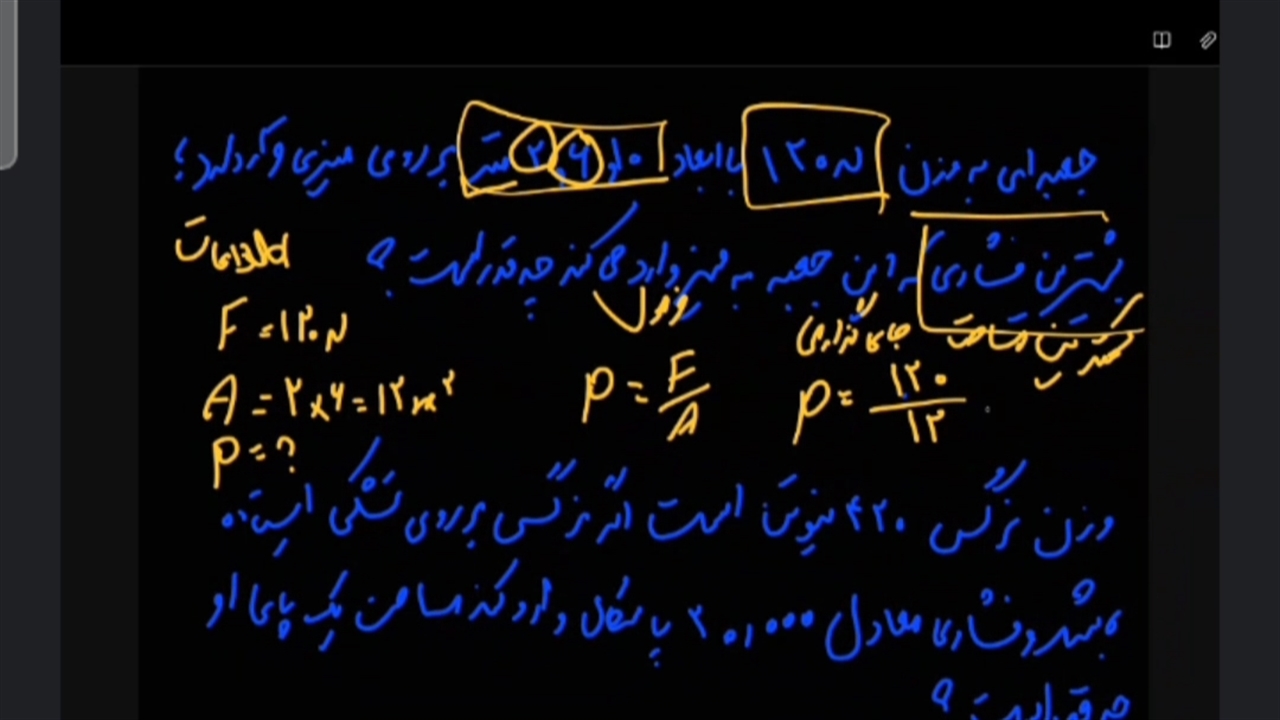 جعبه ای به وزن ۱۲۰N با ابعاد ۱۰ و ۶ و ۲ متر بر روی میزی قرار دارد؛
بیشترین فشاری که این جعبه به میز وارد می کند چه قدر است ؟
کمترین مساحت
اطلاعات
فرمول
جای گذاری
F = ۱۲۰N
A = ۲×۶ = ۱۲m²
P = ?
P = F/A
P = ۱۲۰/۱۲
وزن نرگس ۴۲۰ نیوتن است اگر نرگس بر روی تشکی ایستاده
باشد و فشاری معادل پاسکال وارد کند مساحت یک پای او
چه قدر است ؟